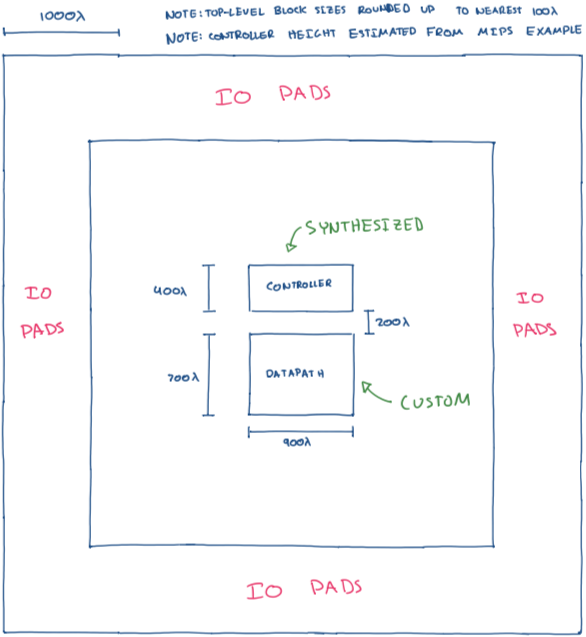 1000λ
NOTE: TOP-LEVEL BLOCK SIZES ROUNDED UP TO NEAREST 100λ
NOTE: CONTROLLER HEIGHT ESTIMATED FROM MIPS EXAMPLE
IO PADS
SYNTHESIZED
400λ
CONTROLLER
IO
PADS
200λ
IO
PADS
700λ
DATAPATH
CUSTOM
900λ
IO PADS